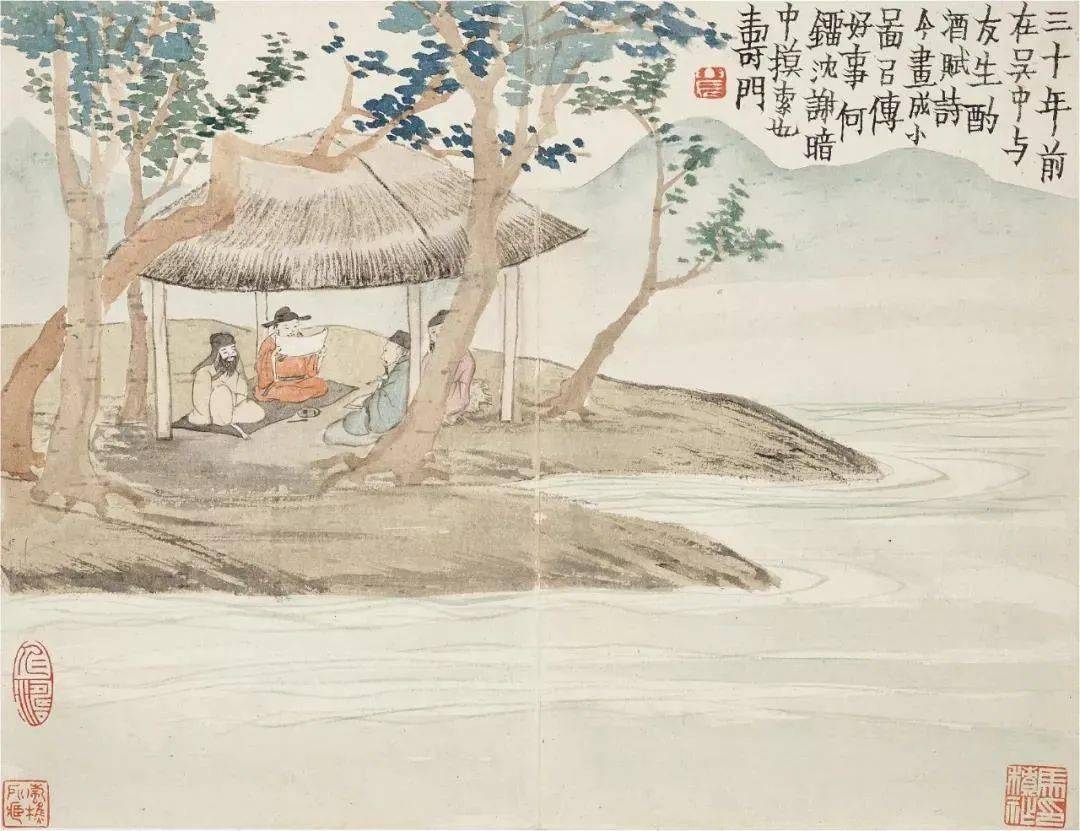 三十年前
在吴中与
友生酌
酒赋詩
今畫成小
啚㠯傳
好事何
劉沈謝暗
中摸索也
壽門